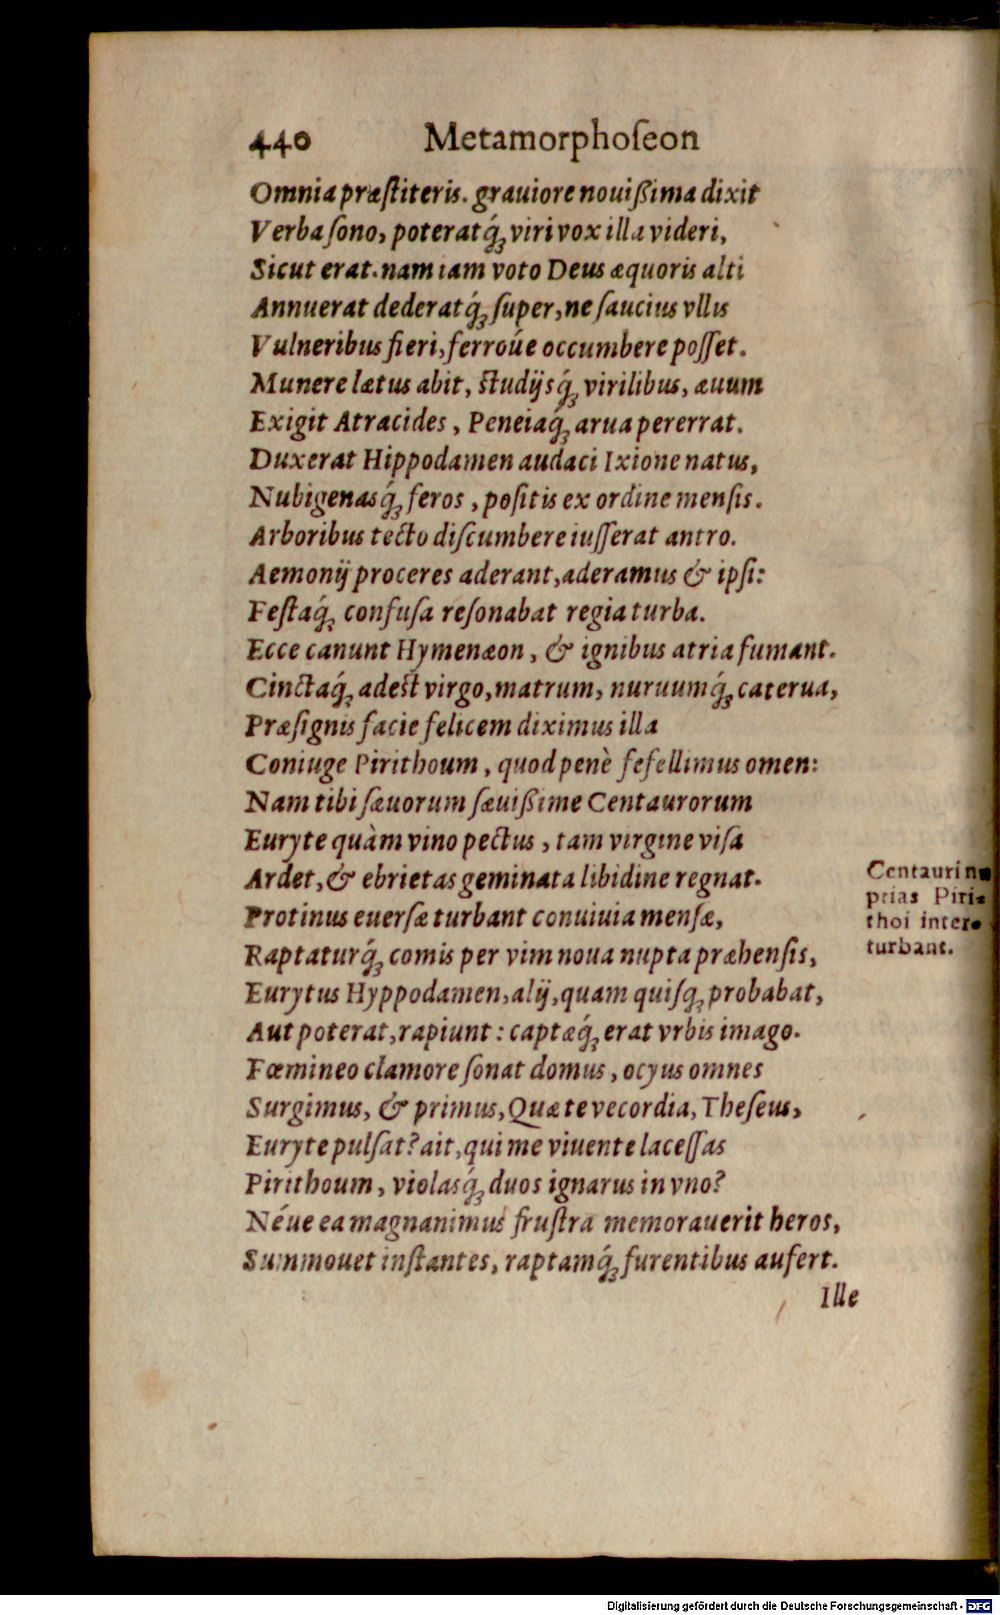 440 Metamorphoſeon
Omnia præſtiteris. grauiore nouißima dixit
Verba ſono, poteratq́; viri vox illa videri,
Sicut erat. nam iam voto Deus æquoris alti
Annuerat dederatq́; ſuper, ne ſaucius vllis
Vulneribus fieri, ferróue occumbere poſſet.
Munere lætus abit, ſtudijsq́; virilibus, æuum
Exigit Atracides, Peneiaq́; arua pererrat.
Duxerat Hippodamen audaci Ixione natus,
Nubigenasq́; feros, poſitis ex ordine menſis.
Arboribus tecto diſcumbere iuſſerat antro.
Aemonij proceres aderant, aderamus & ipſi:
Feſtaq́; confuſa reſonabat regia turba.
Ecce canunt Hymenæon, & ignibus atria fumant.
Cinctaq́; adeſt virgo, matrum, nuruumq́; caterua,
Præſignis facie felicem diximus illa
Coniuge Pirithoum, quod penè fefellimus omen:
Nam tibi ſæuorum ſæuißime Centaurorum
Euryte quàm vino pectus, tam virgine viſa
Ardet, & ebrietas geminata libidine regnat.
Protinus euerſæ turbant conuiuia menſæ,
Raptaturq́; comis per vim noua nupta præhenſis,
Eurytus Hyppodamen, alij, quam quiſq; probabat,
Aut poterat, rapiunt: captæq́; erat vrbis imago.
Fœmineo clamore ſonat domus, ocyus omnes
Surgimus, & primus, Quæ te vecordia, Theſeus,
Euryte pulſat? ait, qui me viuente laceſſas
Pirithoum, violasq́; duos ignarus in vno?
Néue ea magnanimus fruſtra memorauerit heros,
Summouet inſtantes, raptamq́; furentibus aufert.
Ille
Centauri nu
ptias Piri-
thoi inter-
turbant.
Digitalisierung gefördert durch die Deutsche Forschungsgemeinschaft - DFG